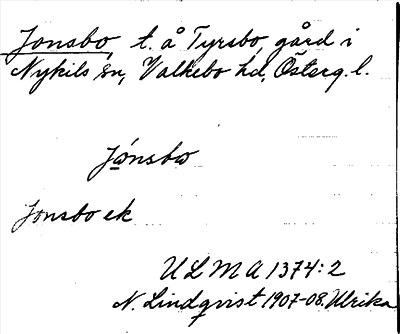 Jonsbo, t. å Tyrsbo, gård i
Nykils sn, Valkebo hd, Österg. l.
Jónsbω
Jonsboek
ULMA 1374:2
N. Lindqvist 1907-08. Ulrika